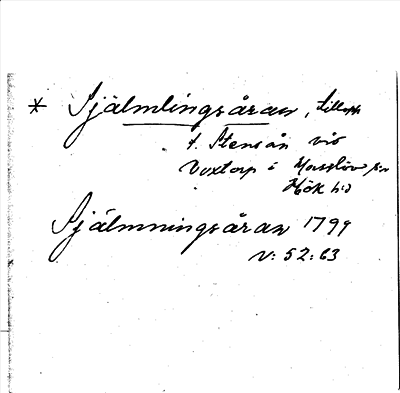 * Själmlingsåran, tillopp
t. Stensån vid
Voxtorp i Hasslöv sn
Hök hd
Själmningsåran 1799
V: 52: 63